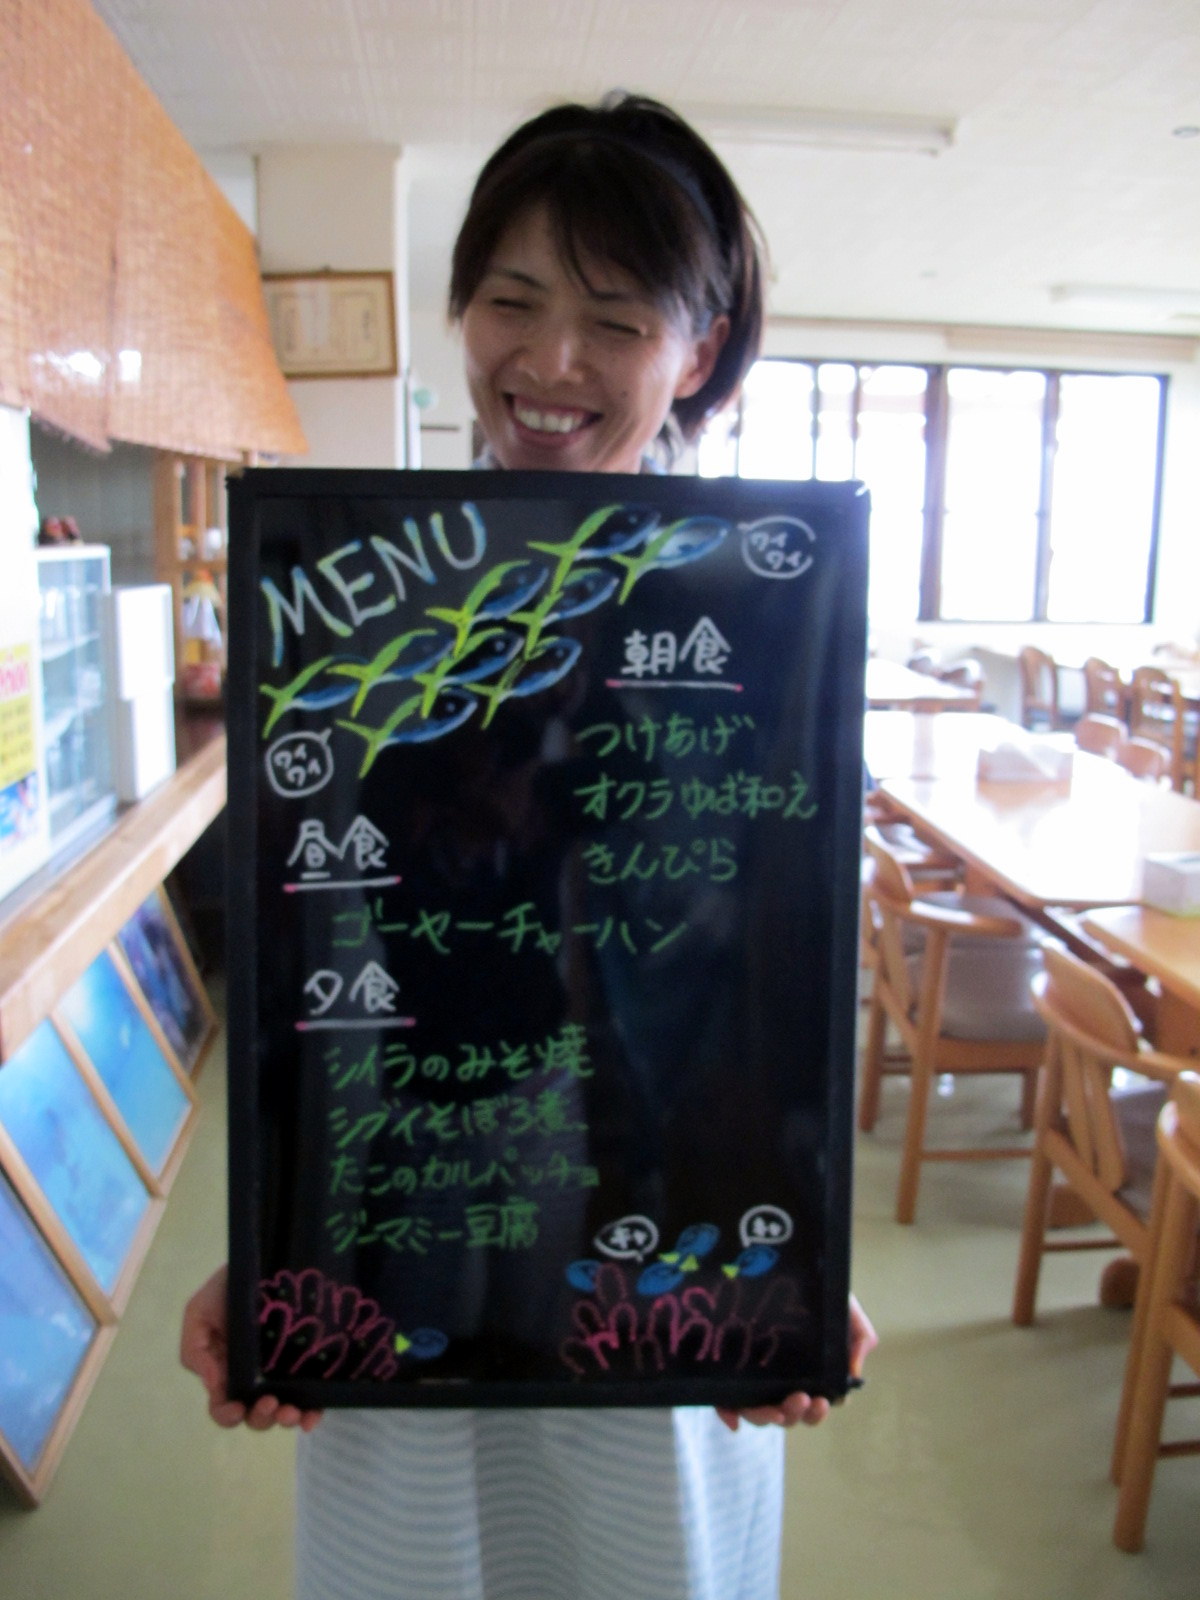 MENU
ワイ
ワイ
朝食
つけあげ
オクラゆば和え
きんぴら
ワイ
ワイ
昼食
ゴーヤーチャーハン
夕食
シイラのみそ焼
シブイそぼろ煮
たこのカルパッチョ
ジーマミー豆腐
キャ
キャ